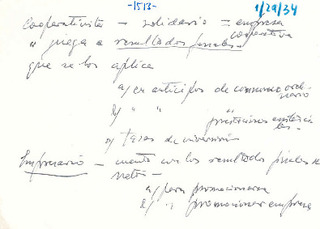 -1513-
1/29/34
Cooperativista – solidario = empresa
cooperativa
" juega a resultados finales
que se los aplica
a/ en anticipos de consumo ordi-
nario
b/ " " prestaciones asistencia-
les
c/ tasas de inversión
Empresario – cuenta con los resultados finales
netos –
a/ para promocionarse
b/ " promocionar empresa